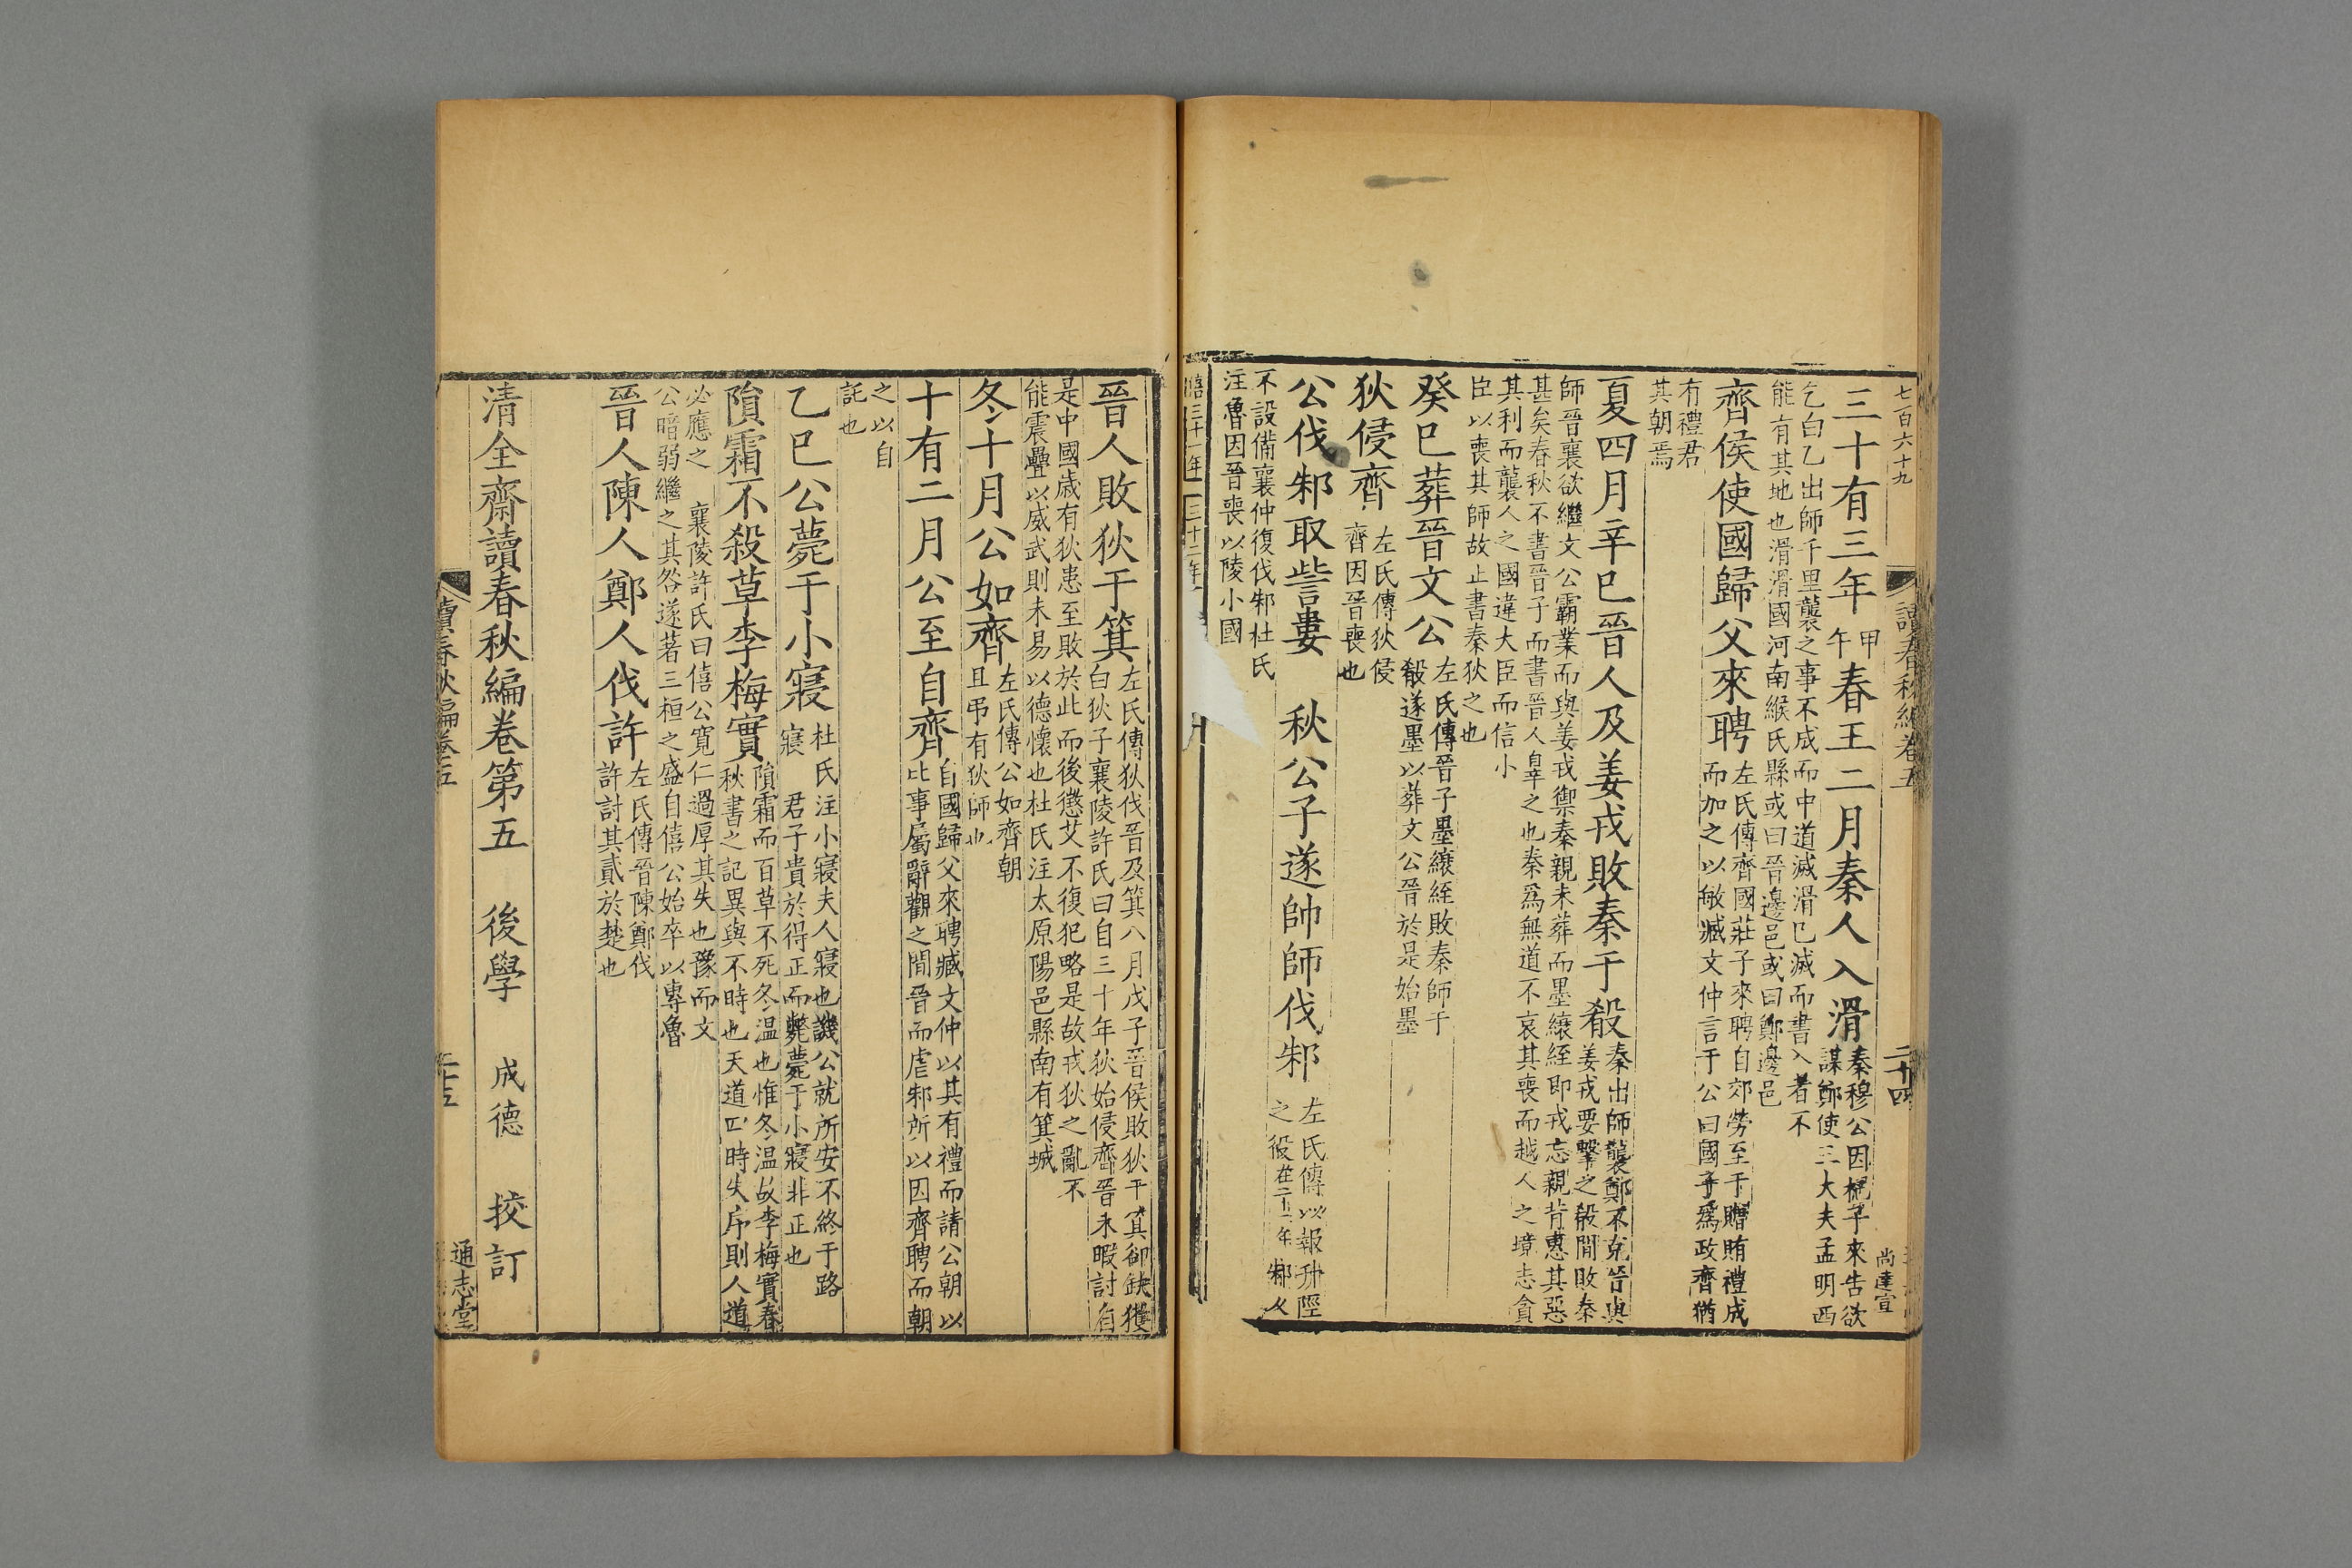 七百六十九
讀春秋編卷五
二十四
尚達宣
三十有三年甲午春王二月秦人入滑秦穆公因杞子來告欲謀鄭使三大夫孟明西
乞白乙出師千里襲之事不成而中道滅滑已滅而書入者不
能有其地也滑滑國河南緱氏縣或曰晉邊邑或曰鄭邊邑
齊侯使國歸父來聘左氏傳齊國莊子來聘自郊勞至于贈賄禮成而加之以敏臧文仲言于公曰國子爲政齊猶
有禮君
其朝焉
夏四月辛巳晉人及姜戎敗秦于殽秦出師襲鄭不克晉與姜戎要擊之殽間敗秦
師晉襄欲繼文公霸業而與姜戎禦秦親未葬而墨縗絰即戎忘親背惠其惡
甚矣春秋不書晉子而書晉人辠之也秦爲無道不哀其喪而越人之境志貪
其利而襲人之國違大臣而信小
臣以喪其師故止書秦狄之也
癸巳葬晉文公左氏傳晉子墨縗絰敗秦師于殽遂墨以葬文公晉於是始墨
狄侵齊左氏傳狄侵齊因晉喪也
公伐邾取訾婁 秋公子遂帥師伐邾左氏傳以報升陘之役在二十二年邾人
不設備襄仲復伐邾杜氏
注魯因晉喪以陵小國
僖三十一年 三十二年
晉人敗狄于箕左氏傳狄伐晉及箕八月戊子晉侯敗狄于箕郤缺獲白狄子襄陵許氏曰自三十年狄始侵齊晉未暇討自
是中國歲有狄患至敗於此而後懲艾不復犯略是故戎狄之亂不
能震疊以威武則未易以德懷也杜氏注太原陽邑縣南有箕城
冬十月公如齊左氏傳公如齊朝且弔有狄師也
十有二月公至自齊自國歸父來聘臧文仲以其有禮而請公朝以比事屬辭觀之間晉而虐邾所以因齊聘而朝
之以自
託也
乙巳公薨于小寢杜氏注小寢夫人寢也譏公就所安不終于路寢 君子貴於得正而斃薨于小寢非正也
隕霜不殺草李梅實隕霜而百草不死冬温也惟冬温故李梅實春秋書之記異與不時也天道四時失序則人道
必應之 襄陵許氏曰僖公寛仁過厚其失也豫而文
公暗弱繼之其咎遂著三桓之盛自僖公始卒以專魯
晉人陳人鄭人伐許左氏傳晉陳鄭伐許討其貳於楚也
清全齋讀春秋編卷第五 後學 成德 挍訂
讀春秋編卷五
二十五
通志堂